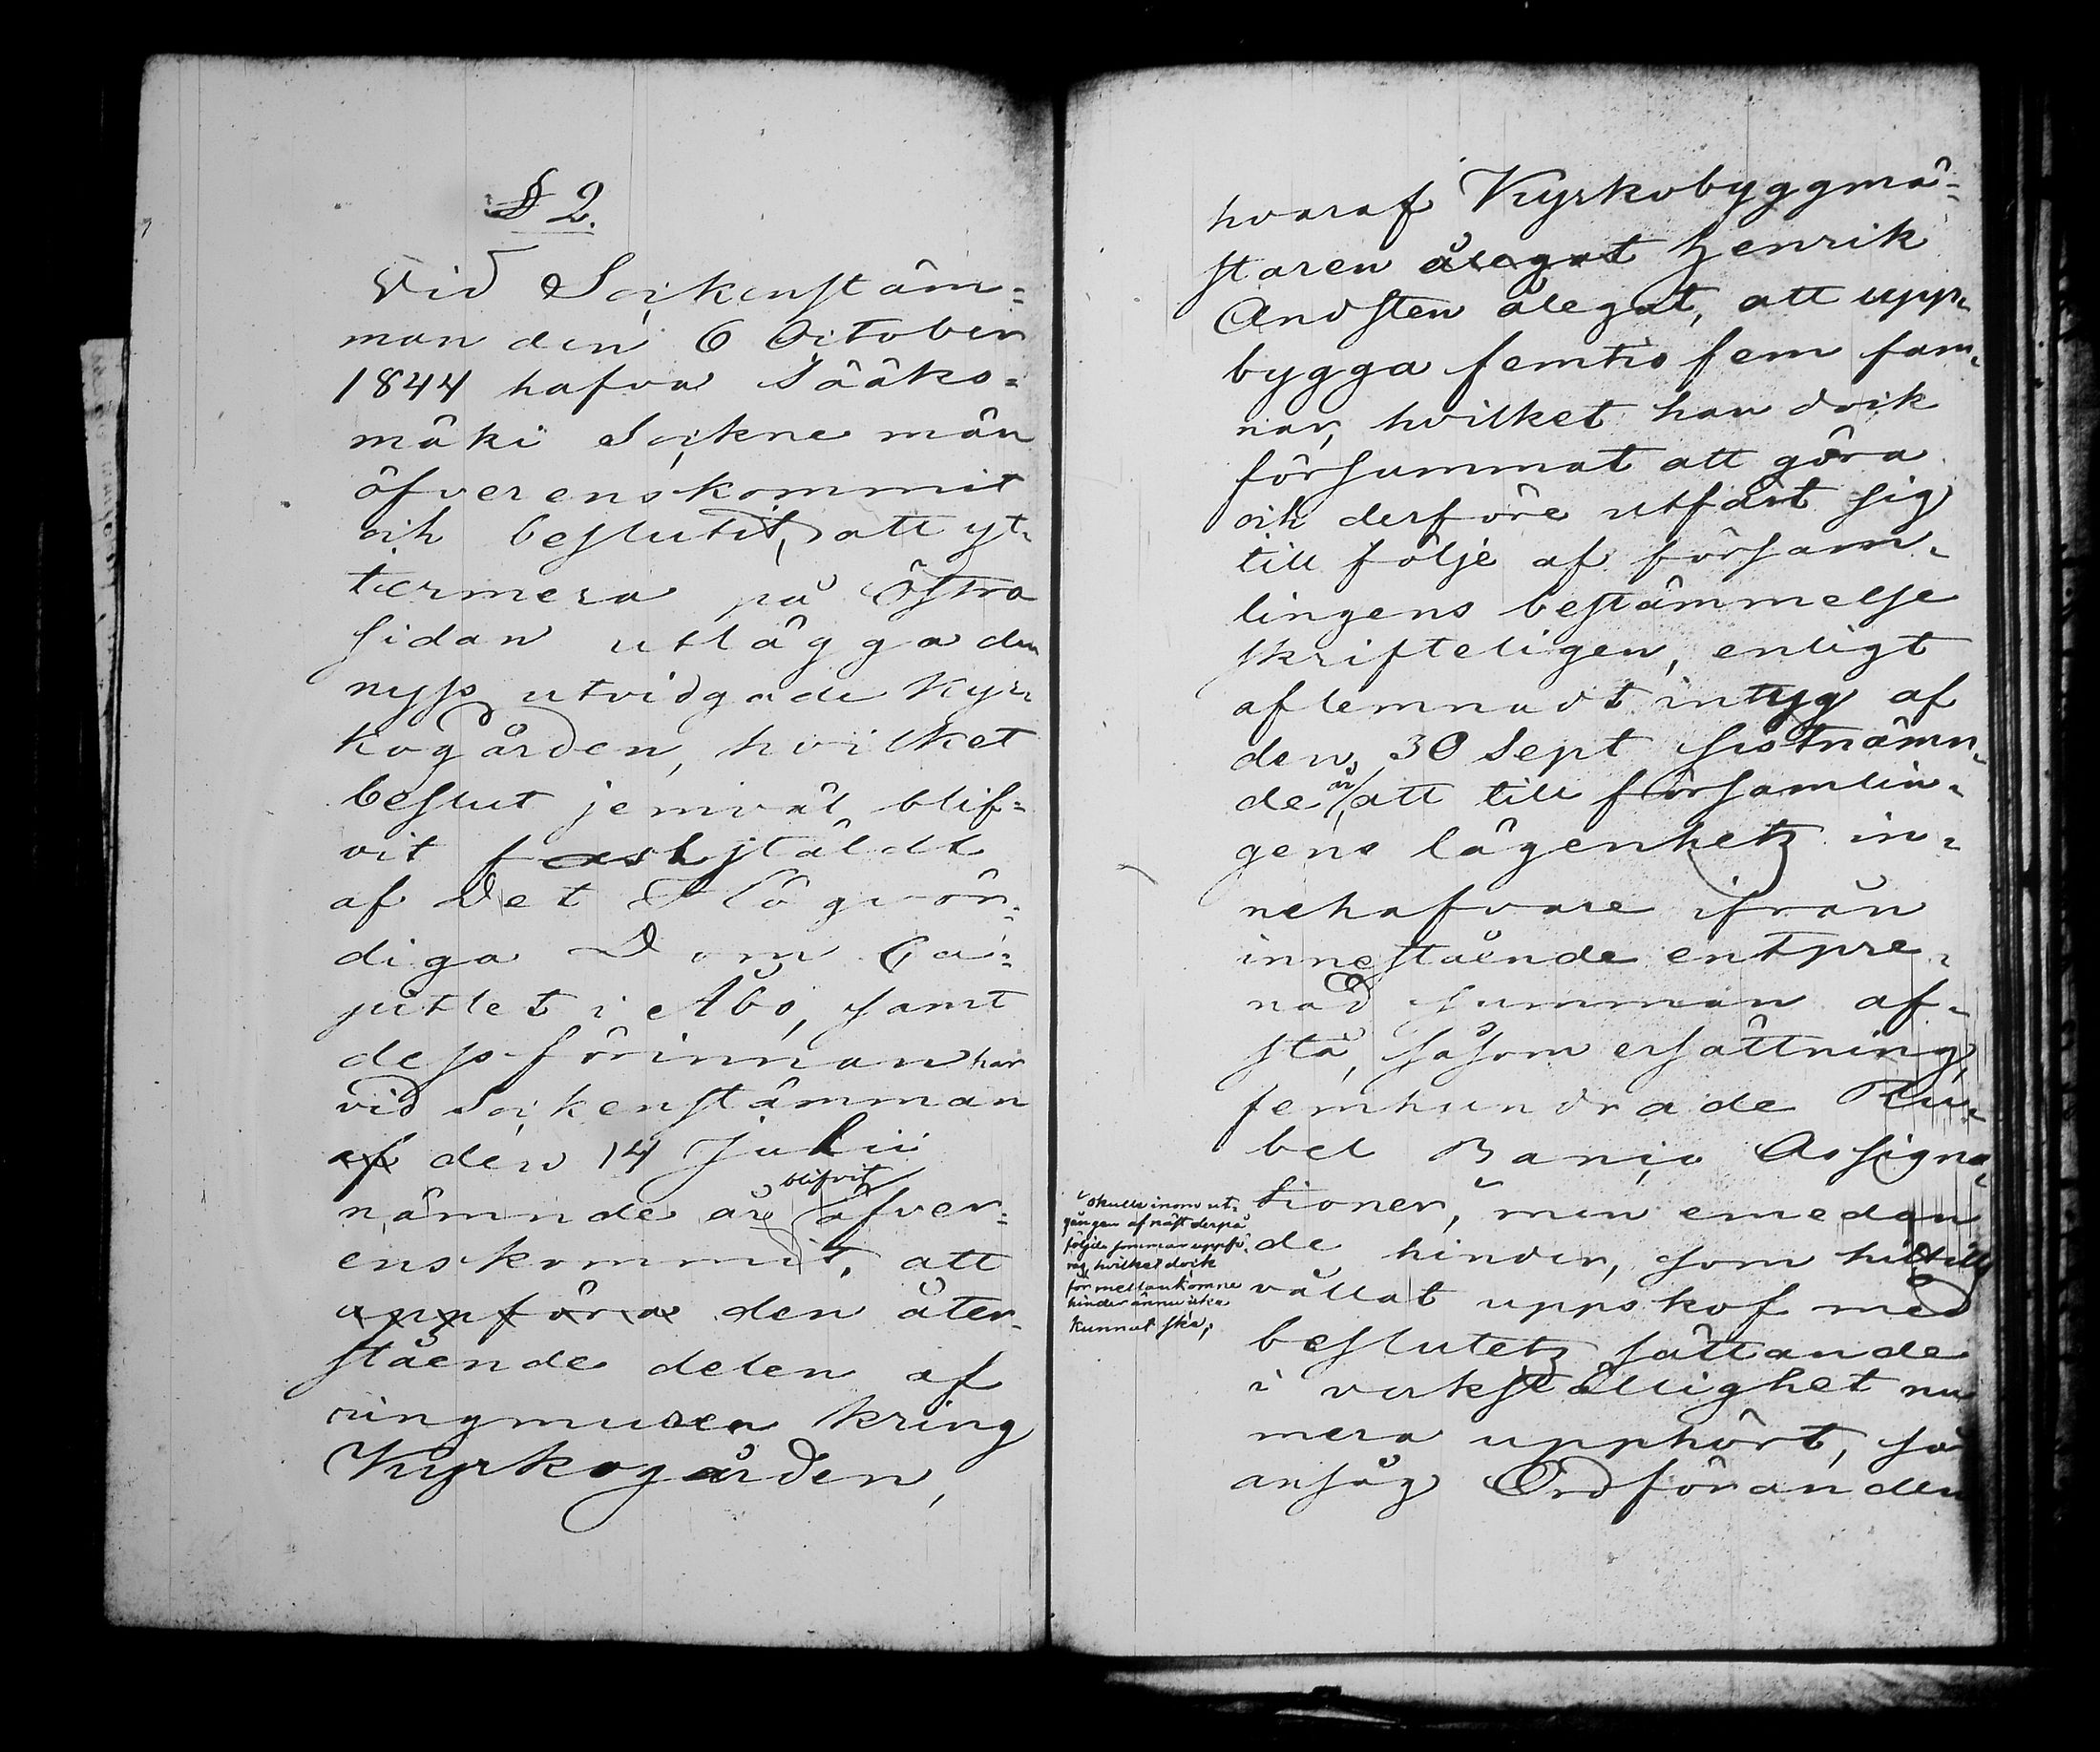 § 2.
Vid Sockenstäm=
man den 6 October
1844 hafva Sääks=
mäki Sockne män
öfverenskommit
och beslutit, att yt-
termera på Östra
sidan utlägga den
nyss utvidgade Kyr-
kogården, hvilket
beslut jemväl blif=
vit fastställdt
af Det Högvör-
diga Dom Ca=
pitlet i Åbo, samt
dessförinnan har
vid Sockenstämman
af den 14 Julii
nämnde år blifvit öfver=
enskommit, att
uppföra den åter-
stående delen af
ringmuren kring
Kyrkogården,
hvaraf Kyrkobyggmä-
staren ålegat Henrik
Andsten ålegat, att upp-
bygga femtio fem fam-
nar, hvilket han dock
försummat att göra
och derföre utfäst sig
till följe af försam-
lingens bestämmelse
skrifteligen, enligt
aflemnadt intyg af
den 30 Sept sistnämn-
de år, att till församlin-
gens lägenhets in-
nehafvare ifrån
innestående entpre-
nad summan af-
stå, såsom ersättning,
femhundrade Ru-
bel Banco Assigna-
tioner, men emedan
de hinder, som hittills
vållat uppskof med
beslutets sättande
i verkställighet nu
mera upphört, så
ansåg Ordföranden
skulle inom ut-
gången af näst derpå
följde sommar uppfö-
ras, hvilket dock
för mellankomne
hinder ännu icke
kunnat ske;